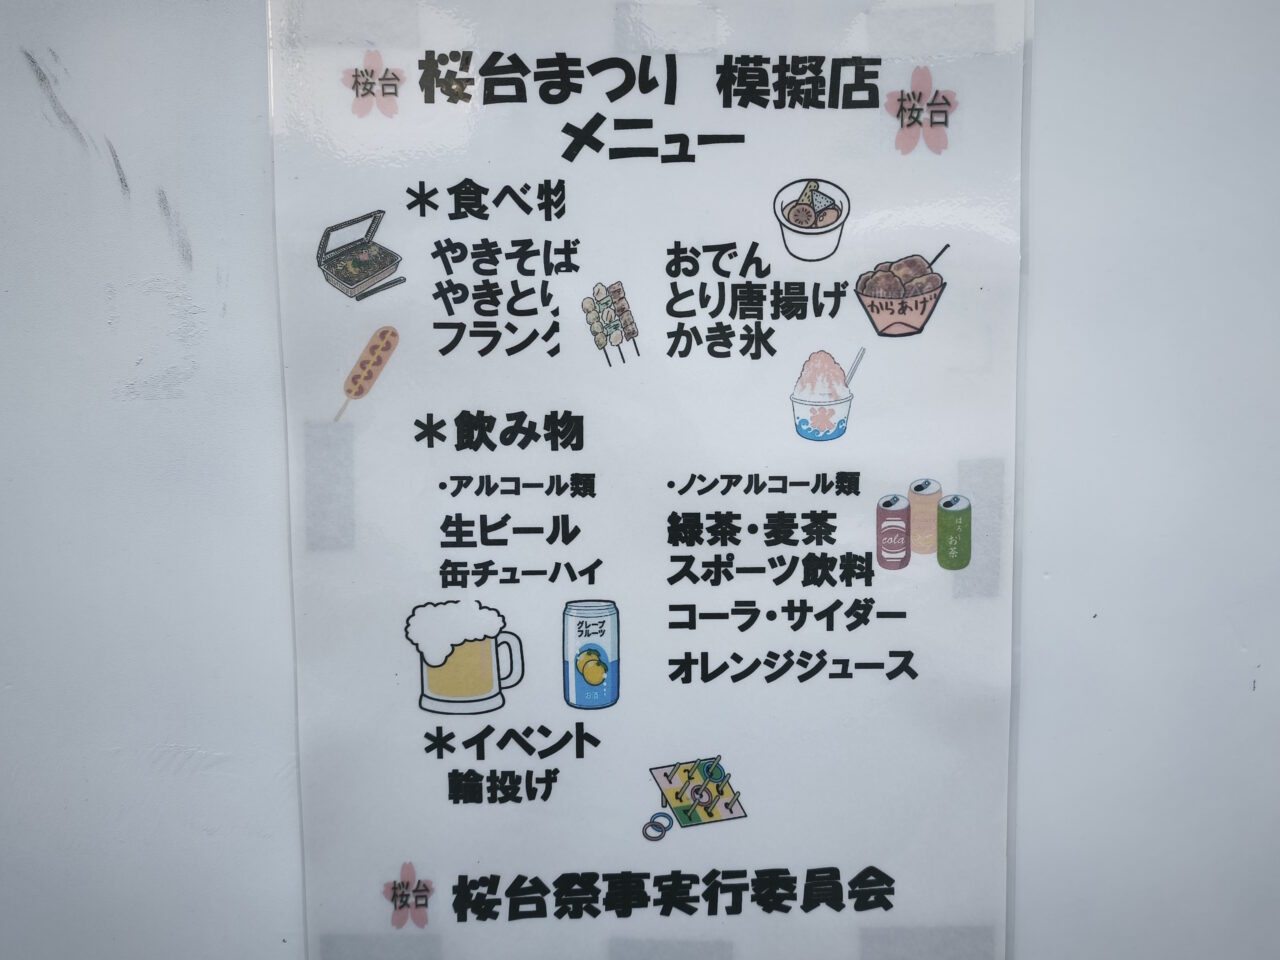 桜台 桜台まつり 模擬店 桜台
メニュー
＊食べ物
やきそば おでん
やきとり とり唐揚げ
フランク かき氷
からあげ
氷
＊飲み物
・アルコール類 ・ノンアルコール類
生ビール 緑茶・麦茶
缶チューハイ スポーツ飲料
コーラ・サイダー
オレンジジュース
cola
お茶
グレープ
フルーツ
お酒
＊イベント
輪投げ
桜台 桜台祭事実行委員会